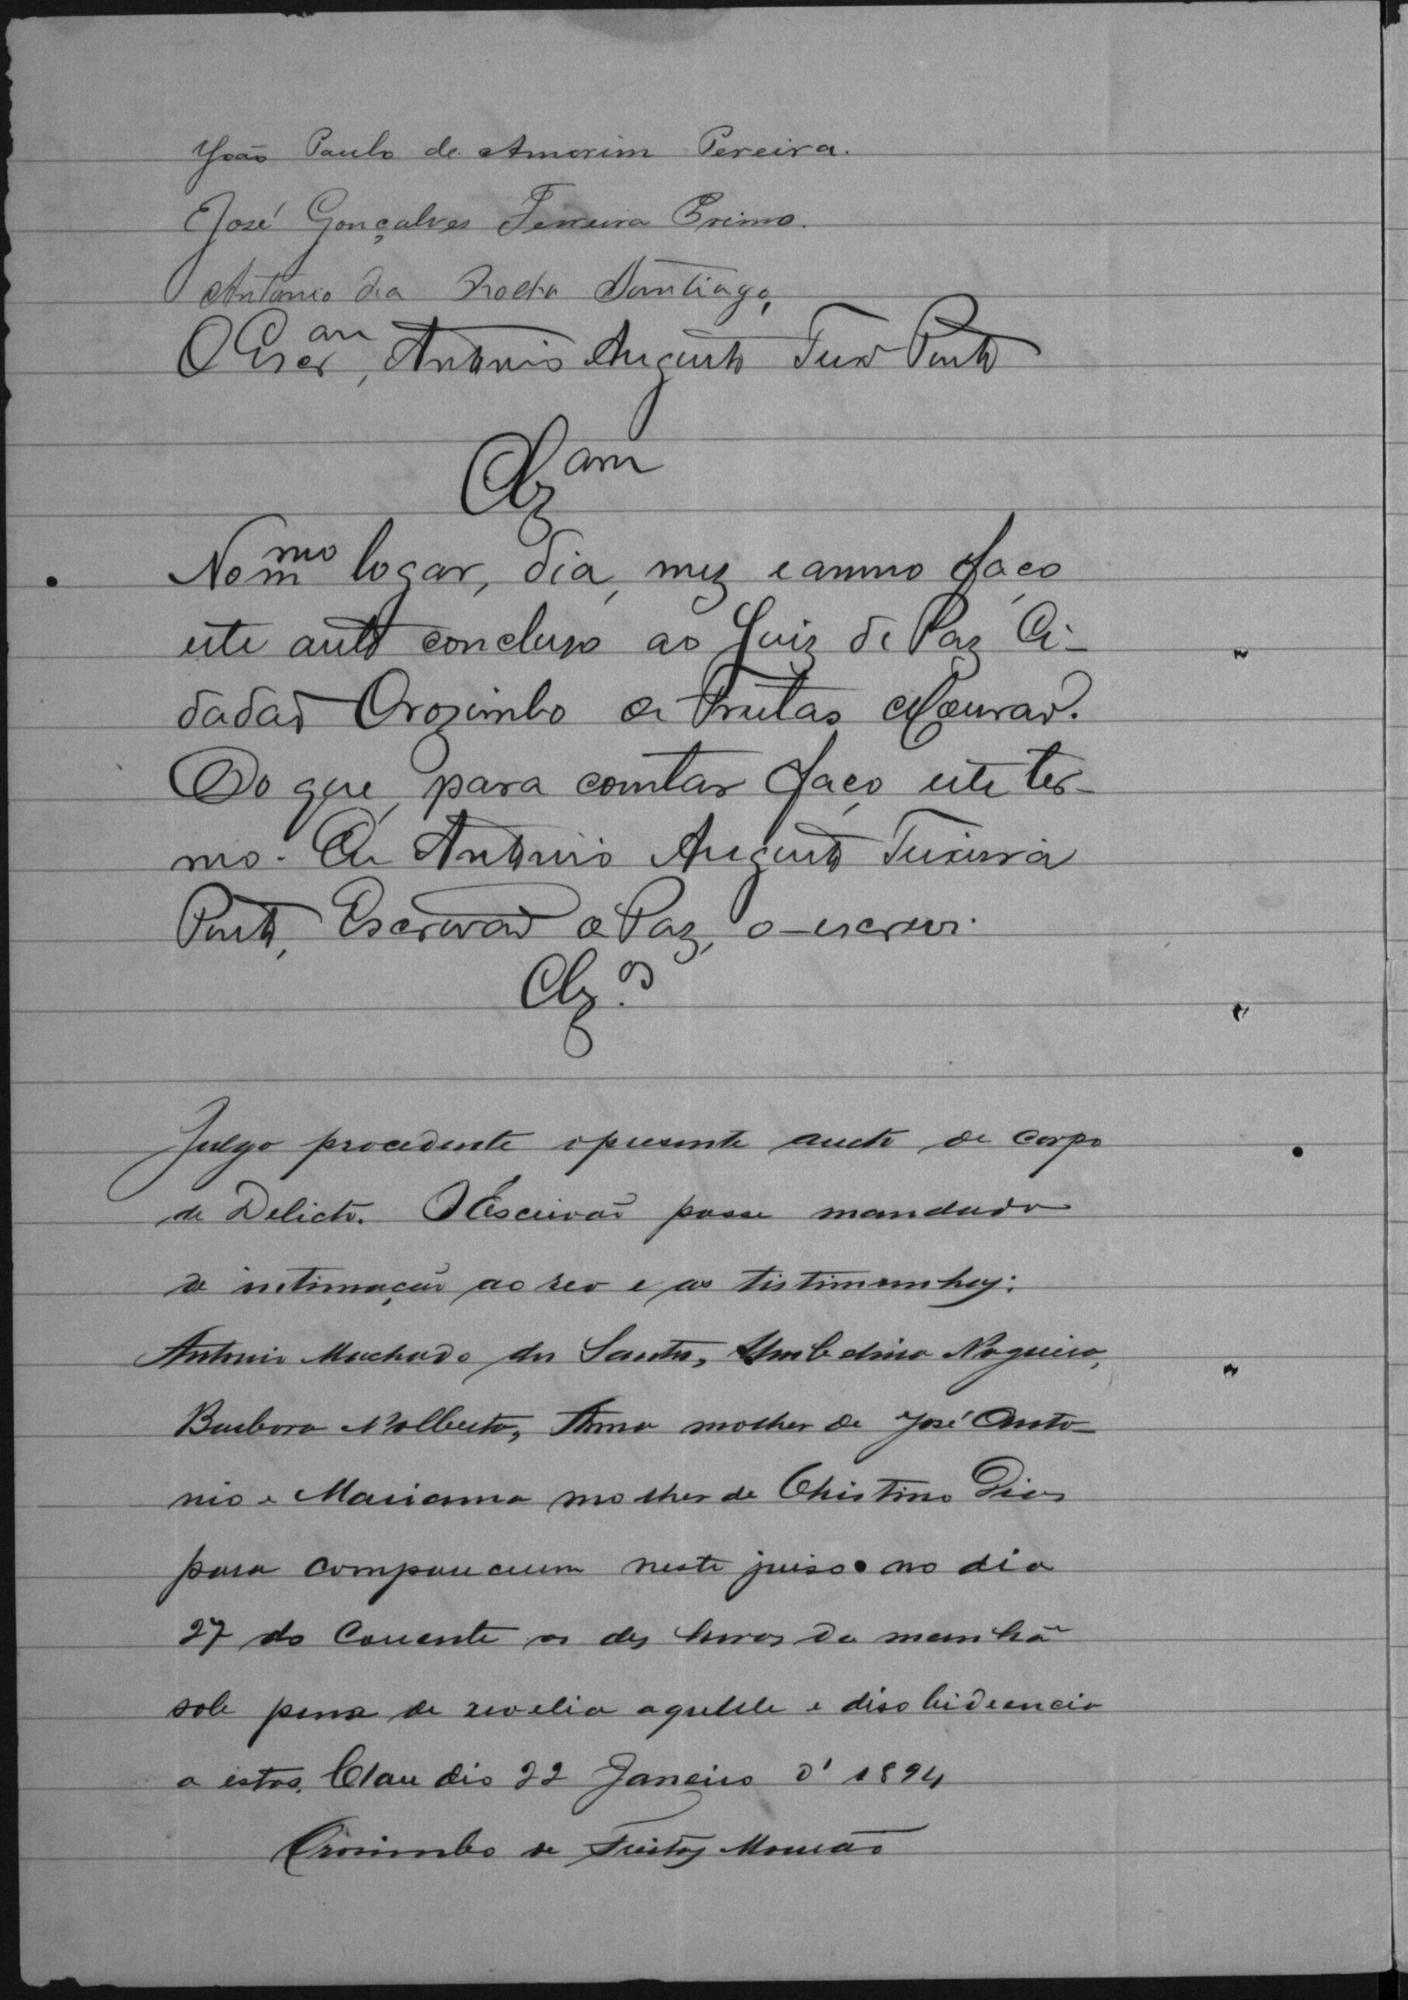 João Paulo de Amorim Pereira.
José Gonçalves Ferreira Primo.
Antonio da Rocha Santiago,
O Escr.am, Antonio Augusto Teixr.a Pinto
Clz.am
No mmo logar, dia, mez e anno faço
este auto concluso ao Juiz de Paz Ci-
dadão Orozimbo de Freitas Mourão.
Do que, para constar faço este ter-
mo. Eu Antonio Augusto Teixeira
Pinto, Escrivão de Paz, o escrevi.
Clz.o
Julgo procedente o presente aucto de corpo
de Delicto. O Escrivão passe mandado
de intimação ao reo e as testimunhas:
Antonio Machado dos Santos, Umbelina Nogueira,
Barbora Nolberta, Anna molher de José Anto-
nio e Marianna molher de Christino Dias
para comparecerem neste juiso no dia
27 do Corrente as des horas da manhã
sob pena de revelia aquelle e disobidiencia
a estas. Claudio 22 Janeiro d' 1894
Orosimbo de Freitas Mourão